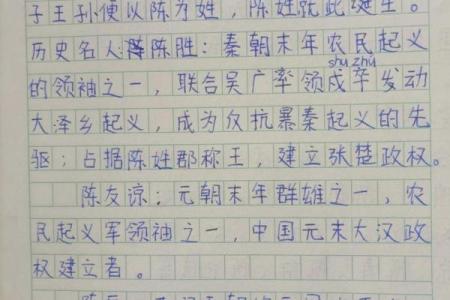 子王孙便以陈为姓，陈姓就此诞生。
历史名人陈胜：秦朝末年农民起义
shu zhú
的领袖之一，联合吴广率领戍卒发动
大泽乡起义，成为反抗暴秦起义的先
驱；占据陈姓郡称王，建立张楚政权。
陈友谅：元朝末年群雄之一，农
民起义军领袖之一，中国元末大汉政
权建立者。